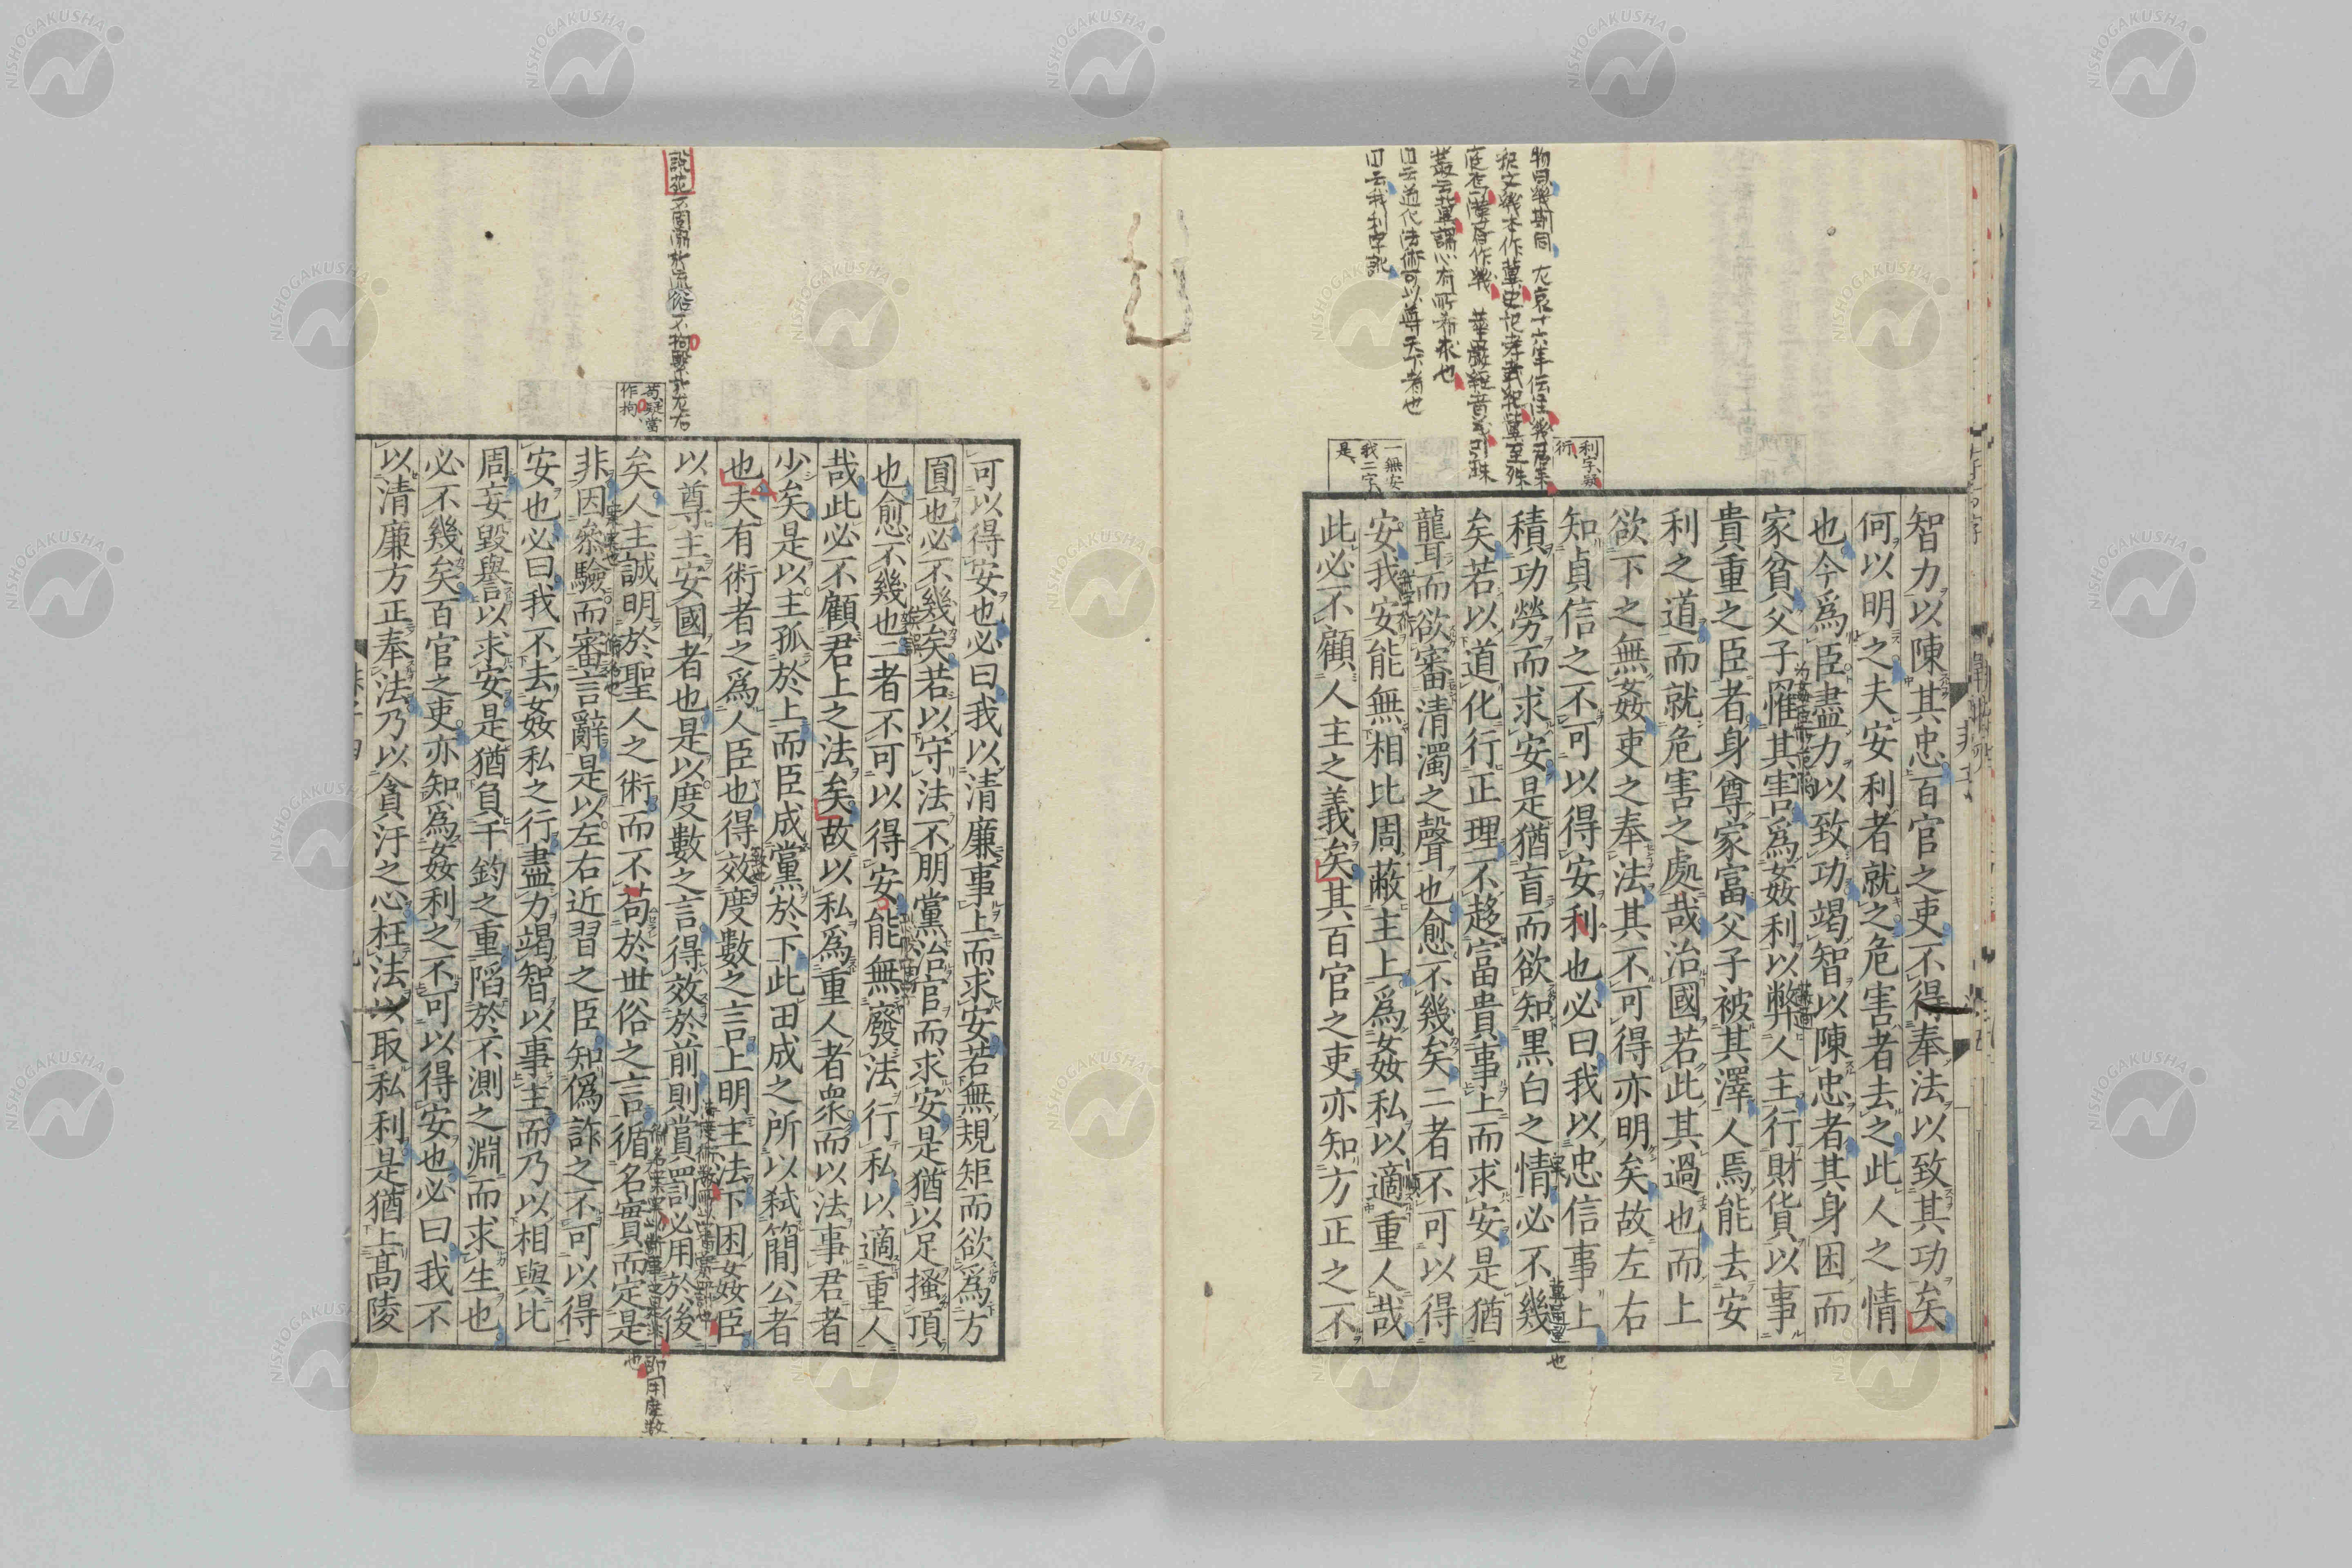 智力以陳其忠百官之吏不得奉法以致其功矣
何以明之夫安利者就之危害者去之此人之情
也今爲臣盡力以致功竭智以陳忠者其身困而
家貧父子罹其害爲姦利以弊人主行財貨以事
貴重之臣者身尊家富父子被其澤人焉能去安
利之道而就危害之處哉治國若此其過也而上
欲下之無姦吏之奉法其不可得亦明矣故左右
知貞信之不可以得安利也必曰我以忠信事上
積功勞而求安是猶盲而欲知黑白之情必不幾
矣若以道化行正理不趍富貴事上而求安是猶
聾而欲審清濁之聲也愈不幾矣二者不可以得
安我安能無相比周蔽主上爲姦私以適重人哉
此必不顧人主之義矣其百官之吏亦知方正之不
利字疑
衍
一無安
我二字
是
可以得安也必曰我以清廉事上而求安若無規矩而欲爲方
圓也必不幾矣若以守法不朋黨治官而求安是猶以足搔頂
也愈不幾也二者不可以得安能無廢法行私以適重人
哉此必不顧君上之法矣故以私爲重人者衆而以法事君者
少矣是以主孤於上而臣成黨於下此田成之所以弒簡公者
也夫有術者之爲人臣也得效度數之言上明主法下困姦臣
以尊主安國者也是以度數之言得效於前則賞罰必用於後
矣人主誠明於聖人之術而不苟於世俗之言循名實而定是
非因參驗而審言辭是以左右近習之臣知僞詐之不可以得
安也必曰我不去姦私之行盡力竭智以事主而乃以相與比
周妄毀譽以求安是猶負千鈞之重陷於不測之淵而求生也
必不幾矣百官之吏亦知爲姦利之不可以得安也必曰我不
以清廉方正奉法乃以貪汙之心枉法以取私利是猶上高陵
苟疑當
作拘
NISHOGAKUSHA